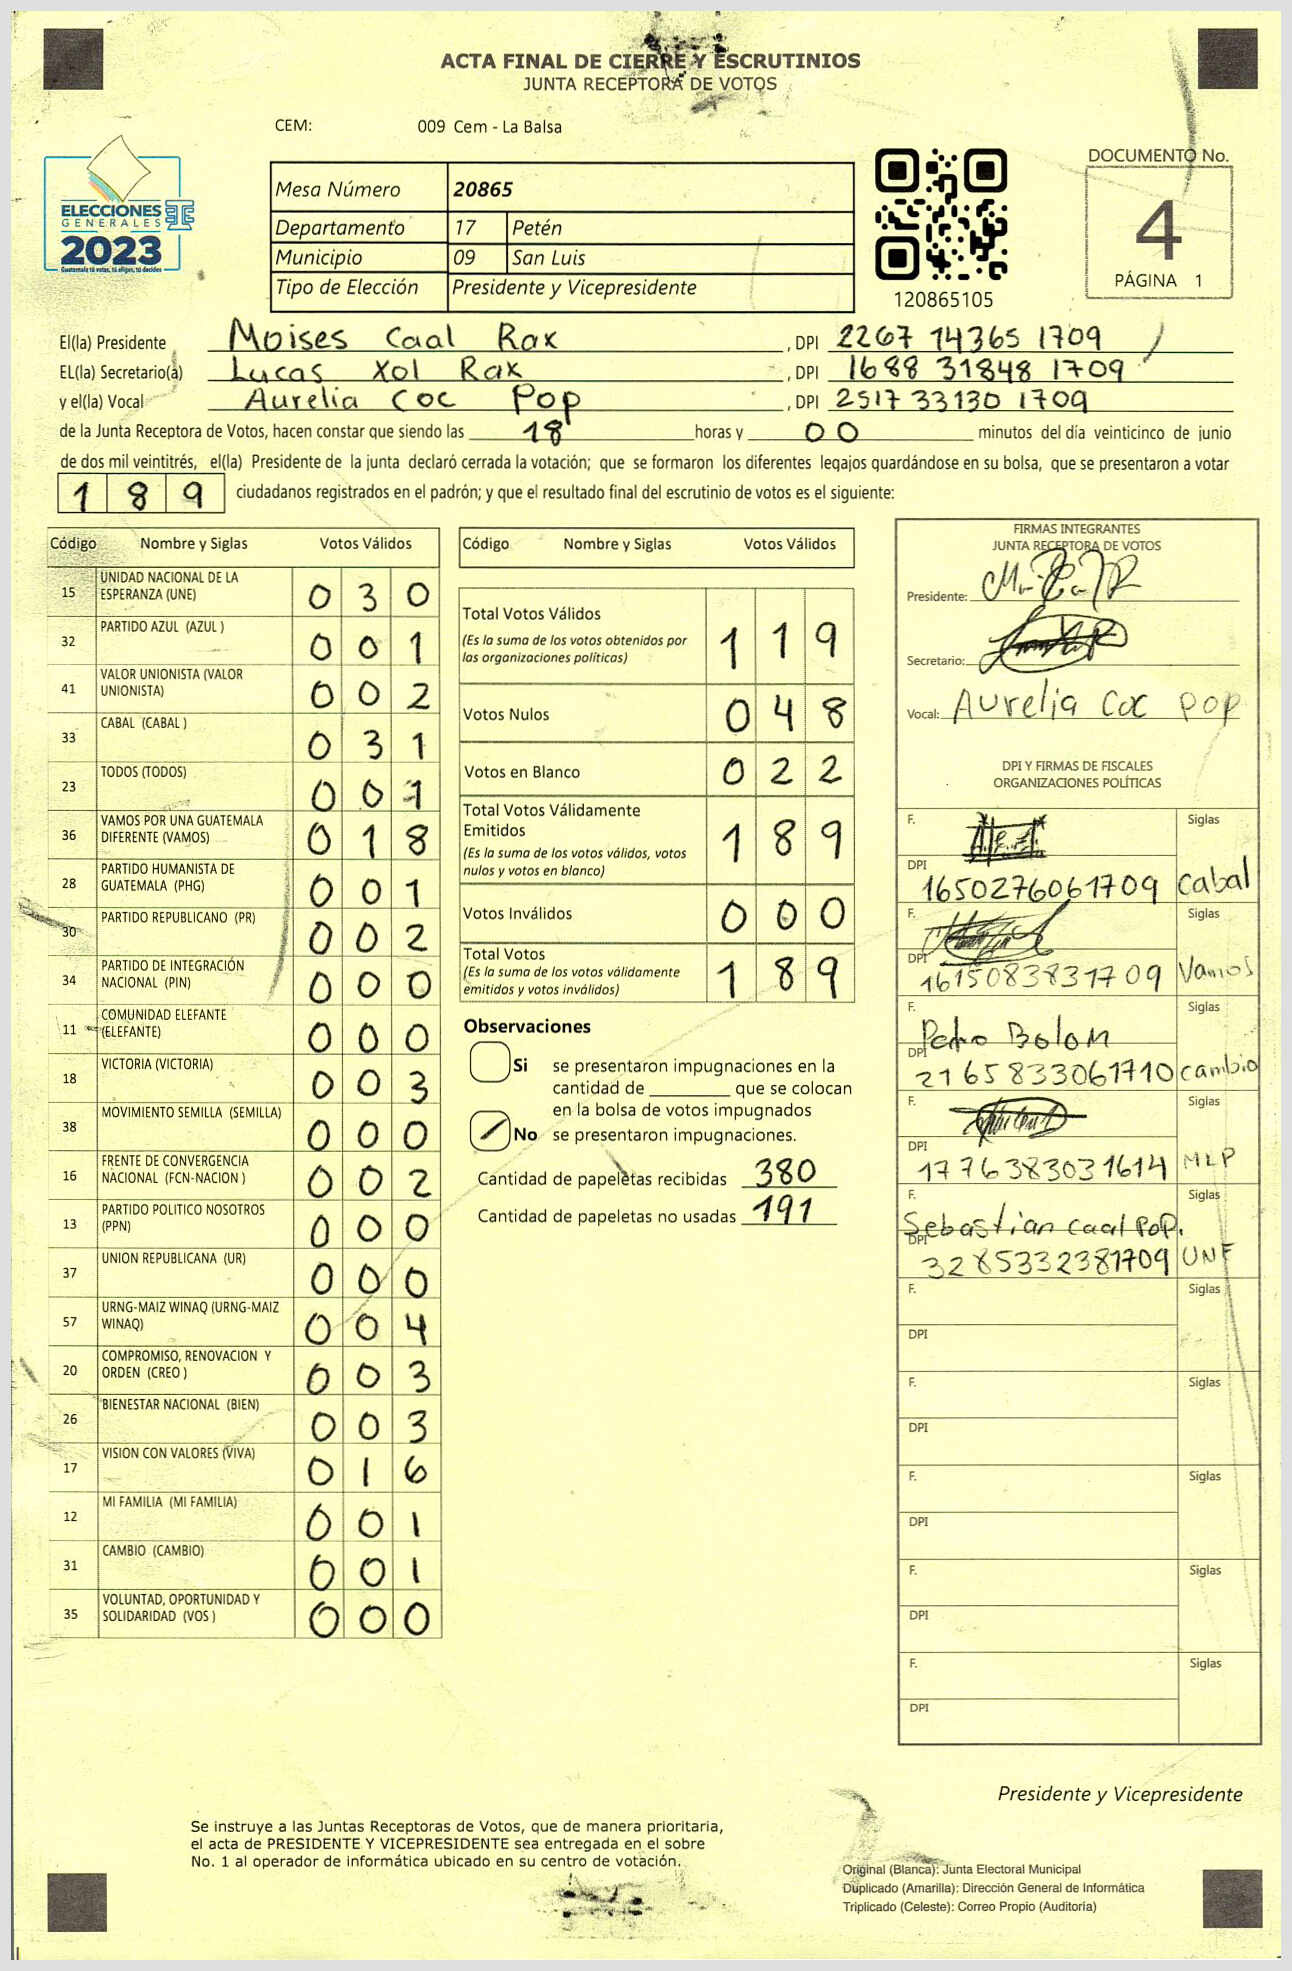 ACTA FINAL DE CIERRE Y ESCRUTINIOS
JUNTA RECEPTORA DE VOTOS
CEM: 009 Cem - La Balsa
ELECCIONES
GENERALES
2023
Guatemala tú votas, tú eliges, tú decides
Mesa Número 20865
Departamento 17 Petén
Municipio 09 San Luis
Tipo de Elección Presidente y Vicepresidente
120865105
DOCUMENTO No.
4
PÁGINA 1
El(la) Presidente Moises Caal Rax , DPI 2267 14365 1709
EL(la) Secretario(a) Lucas Xol Rax , DPI 1688 31848 1709
y el(la) Vocal Aurelia Coc Pop , DPI 2517 33130 1709
de la Junta Receptora de Votos, hacen constar que siendo las 18 horas y 00 minutos del día veinticinco de junio
de dos mil veintitrés, el(la) Presidente de la junta declaró cerrada la votación; que se formaron los diferentes legajos guardándose en su bolsa, que se presentaron a votar
189 ciudadanos registrados en el padrón; y que el resultado final del escrutinio de votos es el siguiente:
Código Nombre y Siglas Votos Válidos
15 UNIDAD NACIONAL DE LA ESPERANZA (UNE) 030
32 PARTIDO AZUL (AZUL ) 001
41 VALOR UNIONISTA (VALOR UNIONISTA) 002
33 CABAL (CABAL ) 031
23 TODOS (TODOS) 001
36 VAMOS POR UNA GUATEMALA DIFERENTE (VAMOS) 018
28 PARTIDO HUMANISTA DE GUATEMALA (PHG) 001
30 PARTIDO REPUBLICANO (PR) 002
34 PARTIDO DE INTEGRACIÓN NACIONAL (PIN) 000
11 COMUNIDAD ELEFANTE (ELEFANTE) 000
18 VICTORIA (VICTORIA) 003
38 MOVIMIENTO SEMILLA (SEMILLA) 000
16 FRENTE DE CONVERGENCIA NACIONAL (FCN-NACION ) 002
13 PARTIDO POLITICO NOSOTROS (PPN) 000
37 UNION REPUBLICANA (UR) 000
57 URNG-MAIZ WINAQ (URNG-MAIZ WINAQ) 004
20 COMPROMISO, RENOVACION Y ORDEN (CREO ) 003
26 BIENESTAR NACIONAL (BIEN) 003
17 VISION CON VALORES (VIVA) 016
12 MI FAMILIA (MI FAMILIA) 001
31 CAMBIO (CAMBIO) 001
35 VOLUNTAD, OPORTUNIDAD Y SOLIDARIDAD (VOS ) 000
Código Nombre y Siglas Votos Válidos
Total Votos Válidos 119
(Es la suma de los votos obtenidos por
las organizaciones políticas)
Votos Nulos 048
Votos en Blanco 022
Total Votos Válidamente
Emitidos 189
(Es la suma de los votos válidos, votos
nulos y votos en blanco)
Votos Inválidos 000
Total Votos 189
(Es la suma de los votos válidamente
emitidos y votos inválidos)
Observaciones
Si se presentaron impugnaciones en la
cantidad de ________ que se colocan
en la bolsa de votos impugnados
No se presentaron impugnaciones.
Cantidad de papeletas recibidas 380
Cantidad de papeletas no usadas 191
FIRMAS INTEGRANTES
JUNTA RECEPTORA DE VOTOS
Presidente:
Secretario:
Vocal: Aurelia Coc Pop
DPI Y FIRMAS DE FISCALES
ORGANIZACIONES POLÍTICAS
F. Siglas
DPI 1650276061709 Cabal
F. Siglas
DPI 1615083831709 Vamos
F. Pedro Bolom Siglas
DPI 2165833061710 cambio
F. Siglas
DPI 1776383031614 MLP
F. Sebastian Caal Pop. Siglas
DPI 3285332381709 UNE
F. Siglas
DPI
F. Siglas
DPI
F. Siglas
DPI
F. Siglas
DPI
F. Siglas
DPI
Presidente y Vicepresidente
Se instruye a las Juntas Receptoras de Votos, que de manera prioritaria,
el acta de PRESIDENTE Y VICEPRESIDENTE sea entregada en el sobre
No. 1 al operador de informática ubicado en su centro de votación.
Original (Blanca): Junta Electoral Municipal
Duplicado (Amarilla): Dirección General de Informática
Triplicado (Celeste): Correo Propio (Auditoría)